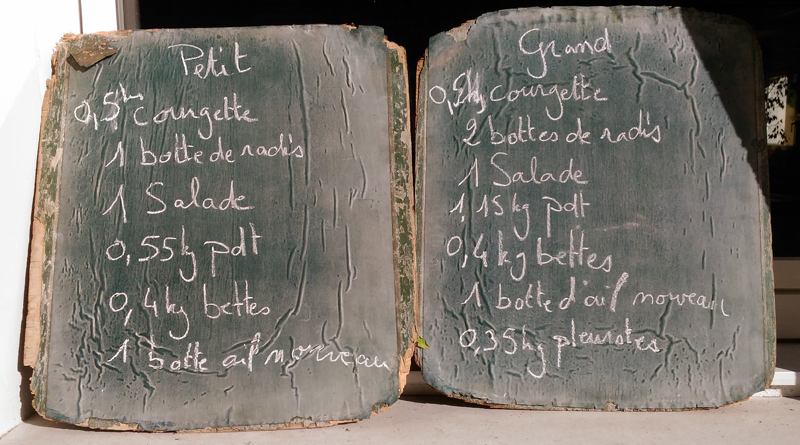 Petit
0,5kg courgette
1 botte de radis
1 Salade
0,55kg pdt
0,4kg bettes
1 botte ail nouveau
Grand
courgette
2 bottes de radis
1 Salade
1,15kg pdt
0,4kg bettes
1 botte d'ail nouveau
0,35kg pleurotes